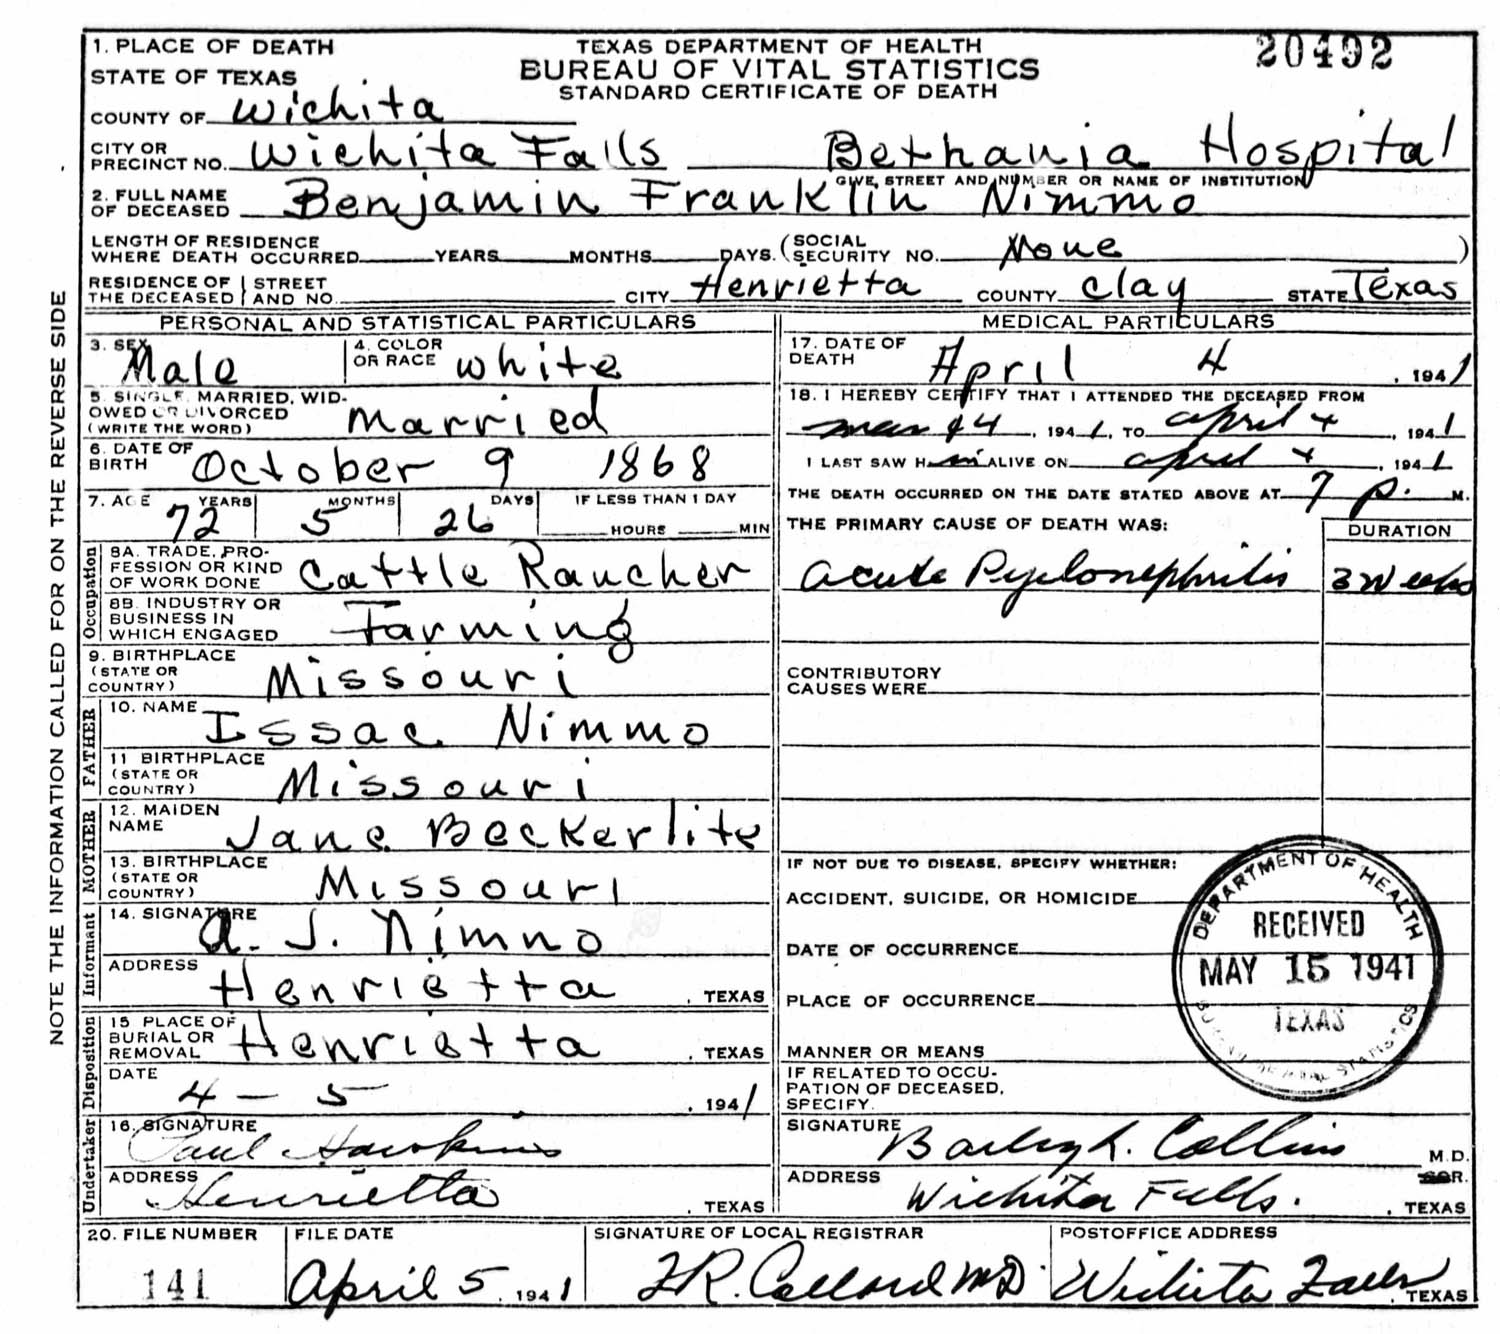 1. PLACE OF DEATH
STATE OF TEXAS
TEXAS DEPARTMENT OF HEALTH
BUREAU OF VITAL STATISTICS
STANDARD CERTIFICATE OF DEATH
20492
COUNTY OF Wichita
CITY OR PRECINCT NO. Wichita Falls Bethania Hospital
GIVE STREET AND NUMBER OR NAME OF INSTITUTION
2. FULL NAME OF DECEASED Benjamin Franklin Nimmo
LENGTH OF RESIDENCE WHERE DEATH OCCURRED YEARS MONTHS DAYS. (SOCIAL SECURITY NO. None )
RESIDENCE OF THE DECEASED STREET AND NO. CITY Henrietta COUNTY Clay STATE Texas
NOTE THE INFORMATION CALLED FOR ON THE REVERSE SIDE
PERSONAL AND STATISTICAL PARTICULARS
3. SEX Male 4. COLOR OR RACE white
5. SINGLE, MARRIED, WIDOWED OR DIVORCED (WRITE THE WORD) Married
6. DATE OF BIRTH October 9 1868
7. AGE 72 YEARS 5 MONTHS 26 DAYS IF LESS THAN 1 DAY HOURS MIN
Occupation
8A. TRADE, PROFESSION OR KIND OF WORK DONE Cattle Rancher
8B. INDUSTRY OR BUSINESS IN WHICH ENGAGED Farming
9. BIRTHPLACE (STATE OR COUNTRY) Missouri
FATHER
10. NAME Issac Nimmo
11 BIRTHPLACE (STATE OR COUNTRY) Missouri
MOTHER
12. MAIDEN NAME Jane Beckerlite
13. BIRTHPLACE (STATE OR COUNTRY) Missouri
Informant
14. SIGNATURE A. J. Nimno
ADDRESS Henrietta , TEXAS
Disposition
15 PLACE OF BURIAL OR REMOVAL Henrietta , TEXAS
DATE 4-5 , 1941
Undertaker
16. SIGNATURE Paul Hawkins
ADDRESS Henrietta , TEXAS
MEDICAL PARTICULARS
17. DATE OF DEATH April 4 , 1941
18. I HEREBY CERTIFY THAT I ATTENDED THE DECEASED FROM
4 , 1941, TO april 4 , 1941
I LAST SAW Him ALIVE ON april 4 , 1941
THE DEATH OCCURRED ON THE DATE STATED ABOVE AT 7 P. M.
THE PRIMARY CAUSE OF DEATH WAS: DURATION
acute Pyelonephritis 3 Weeks
CONTRIBUTORY CAUSES WERE
IF NOT DUE TO DISEASE, SPECIFY WHETHER:
ACCIDENT, SUICIDE, OR HOMICIDE
DATE OF OCCURRENCE
PLACE OF OCCURRENCE
MANNER OR MEANS
IF RELATED TO OCCUPATION OF DECEASED, SPECIFY.
DEPARTMENT OF HEALTH
RECEIVED
MAY 15 1941
TEXAS
BUREAU OF VITAL STATISTICS
SIGNATURE Collins M.D.
ADDRESS Wichita Falls. , TEXAS
20. FILE NUMBER 141
FILE DATE April 5, 1941
SIGNATURE OF LOCAL REGISTRAR Collard MD.
POSTOFFICE ADDRESS Wichita Falls, TEXAS